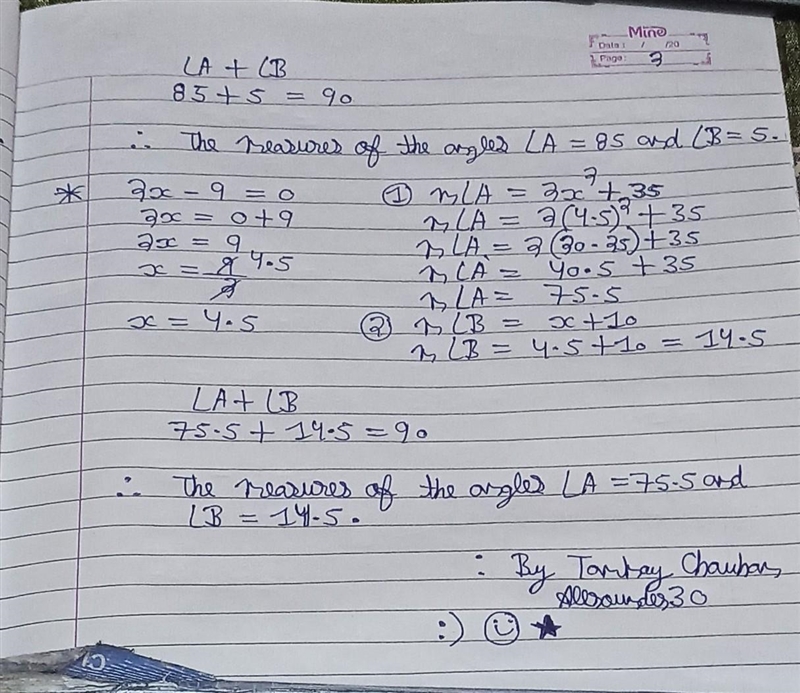 Mine
Date : / /20
Page: 2
∠A + ∠B
85 + 5 = 90
∴ The measures of the angles ∠A = 85 and ∠B = 5.
* 2x - 9 = 0 ① m∠A = 2x² + 35
2x = 0+9 m∠A = 2(4.5)² + 35
2x = 9 m∠A = 2(20.25) + 35
x = 9/2 4.5 m∠A = 40.5 + 35
m∠A = 75.5
x = 4.5 ② m∠B = x+10
m∠B = 4.5+10 = 14.5
∠A + ∠B
75.5 + 14.5 = 90
∴ The measures of the angles ∠A = 75.5 and
∠B = 14.5.
: By Chauhan,
Allrounder30
:) ☺ ★